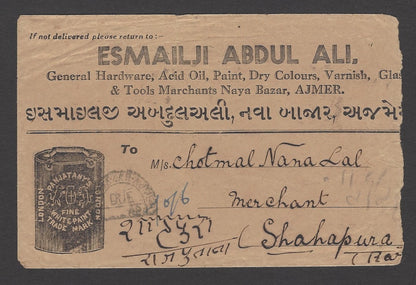 If not delivered please return to:-
ESMAILJI ABDUL ALI,
General Hardware, Acid Oil, Paint, Dry Colours, Varnish, Glas
& Tools Merchants Naya Bazar, AJMER.
ઇસમાઇલજી અબદુલઅલી, નવા બાજાર, અજમે
To
M/s. Chotmal Nana Lal
Merchant
Shahapura
शाहपुरा
राजपुताना
PANJATANI'S
LONDON
FINE
WHITE PAINT
TRADE MARK